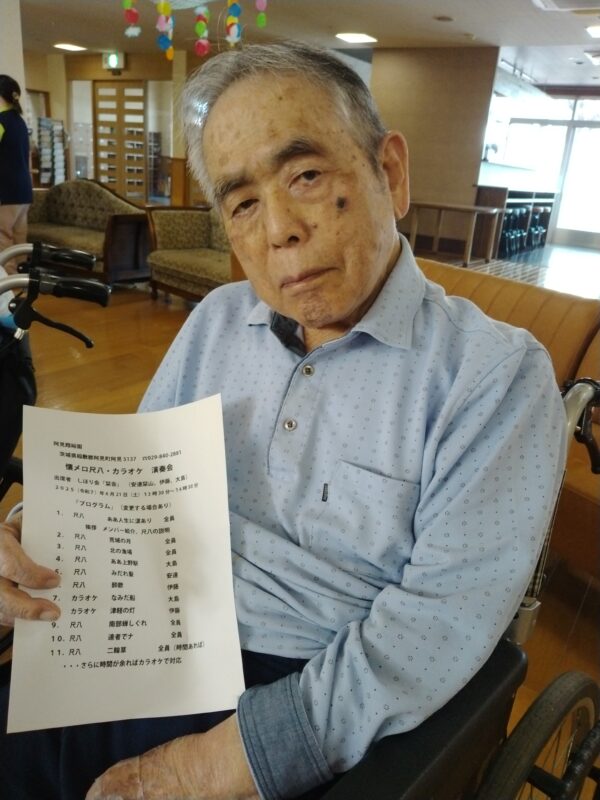 阿見翔裕園
茨城県稲敷郡阿見町阿見5137 ☎029-840-2881
懐メロ尺八・カラオケ 演奏会
出席者 しほり会「栞会」 (安達栞山、伊藤、大島)
2025(令和7)年6月21日(土)13時30分~14時30分
「プログラム」(変更する場合あり)
1. 尺八 ああ人生に涙あり 全員
挨拶 メンバー紹介、尺八の説明
2. 尺八 荒城の月 全員
3. 尺八 北の漁場 全員
4. 尺八 ああ上野駅 大島
尺八 みだれ髪 安達
尺八 酔歌 伊藤
7. カラオケ なみだ船 大島
カラオケ 津軽の灯 伊藤
9. 尺八 南部蝉しぐれ 全員
10. 尺八 達者でナ 全員
11. 尺八 二輪草 全員(時間あれば)
・・・さらに時間が余ればカラオケで対応